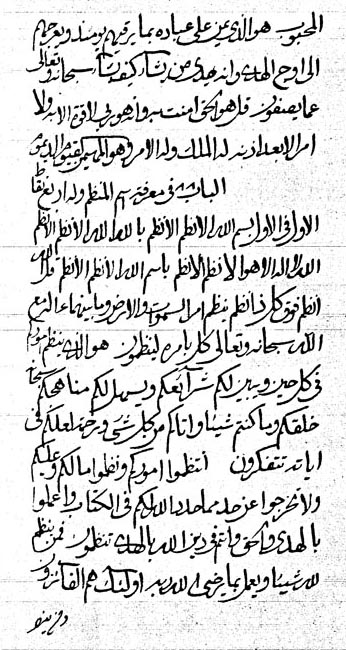 المحبوب هو الذي عين على عباده بما يرقيهم يومئذ ويعرجهم
الى اوج الهدى وانه يهدي من يشاء كيف يشاء سبحانه وتعالى
عما يصفون قل هو الحق امنت به وما هو في الافق الابهى
امر الا بعد اذنه له الملك وله الامر وهو المهيمن القيوم
الباب في معرفة اسم المنظم وله اربع
الاول في الاول بسم الله الانظم الانظم بالله الله الانظم الانظم
الله لا اله الا هو الانظم الانظم باسم الله الانظم الانظم قل الله
انظم فوق كل ذا انظم ينظم امر السموات والارض وما بينهما
الله سبحانه وتعالى كل بامره لينظمون هو الذي ينظم
في كل حين ويبين لكم شرائعكم ويسهل لكم مناهجكم
خلقكم وما كنتم شيئا واتاكم من كل شئ رحمة لعلكم في
اياته تتفكرون انتظموا اموركم ونظموا مالكم وعليكم
ولا تخرجوا عن حد مما حدد الله لكم في الكتاب واعملوا
بالهدى والحق وانتم في دين الله بالهدى تنظمون فمن ينظم
لله شيئا ويعمل بما يرضى الله ربه اولئك هم الفائزون